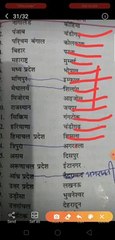 31/32
पंजाब चंडीगढ़
पश्चिम बंगाल कोलकाता
बिहार पटना
महाराष्ट्र मुम्बई
मध्य प्रदेश भोपाल
मणिपुर इम्फाल
मेघालय शिलांग
मिजोरम आइजोल
राजस्थान जयपुर
सिक्किम गंगटोक
हरियाणा चंडीगढ़
हिमाचल प्रदेश शिमला
त्रिपुरा अगरतला
असम दिसपुर
प्रदेश ईटानगर
आंध्र प्रदेश
उत्तर प्रदेश लखनऊ
उड़ीसा भुवनेश्वर
देहरादून